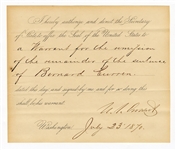 I hereby authorize and direct the Secretary
of State to affix the Seal of the United States to
a Warrant for the remission
of the remainder of the sentence
of Bernard
dated this day, and signed by me and for so doing this
shall be his warrant.
U. S. Grant
Washington, July 23 187